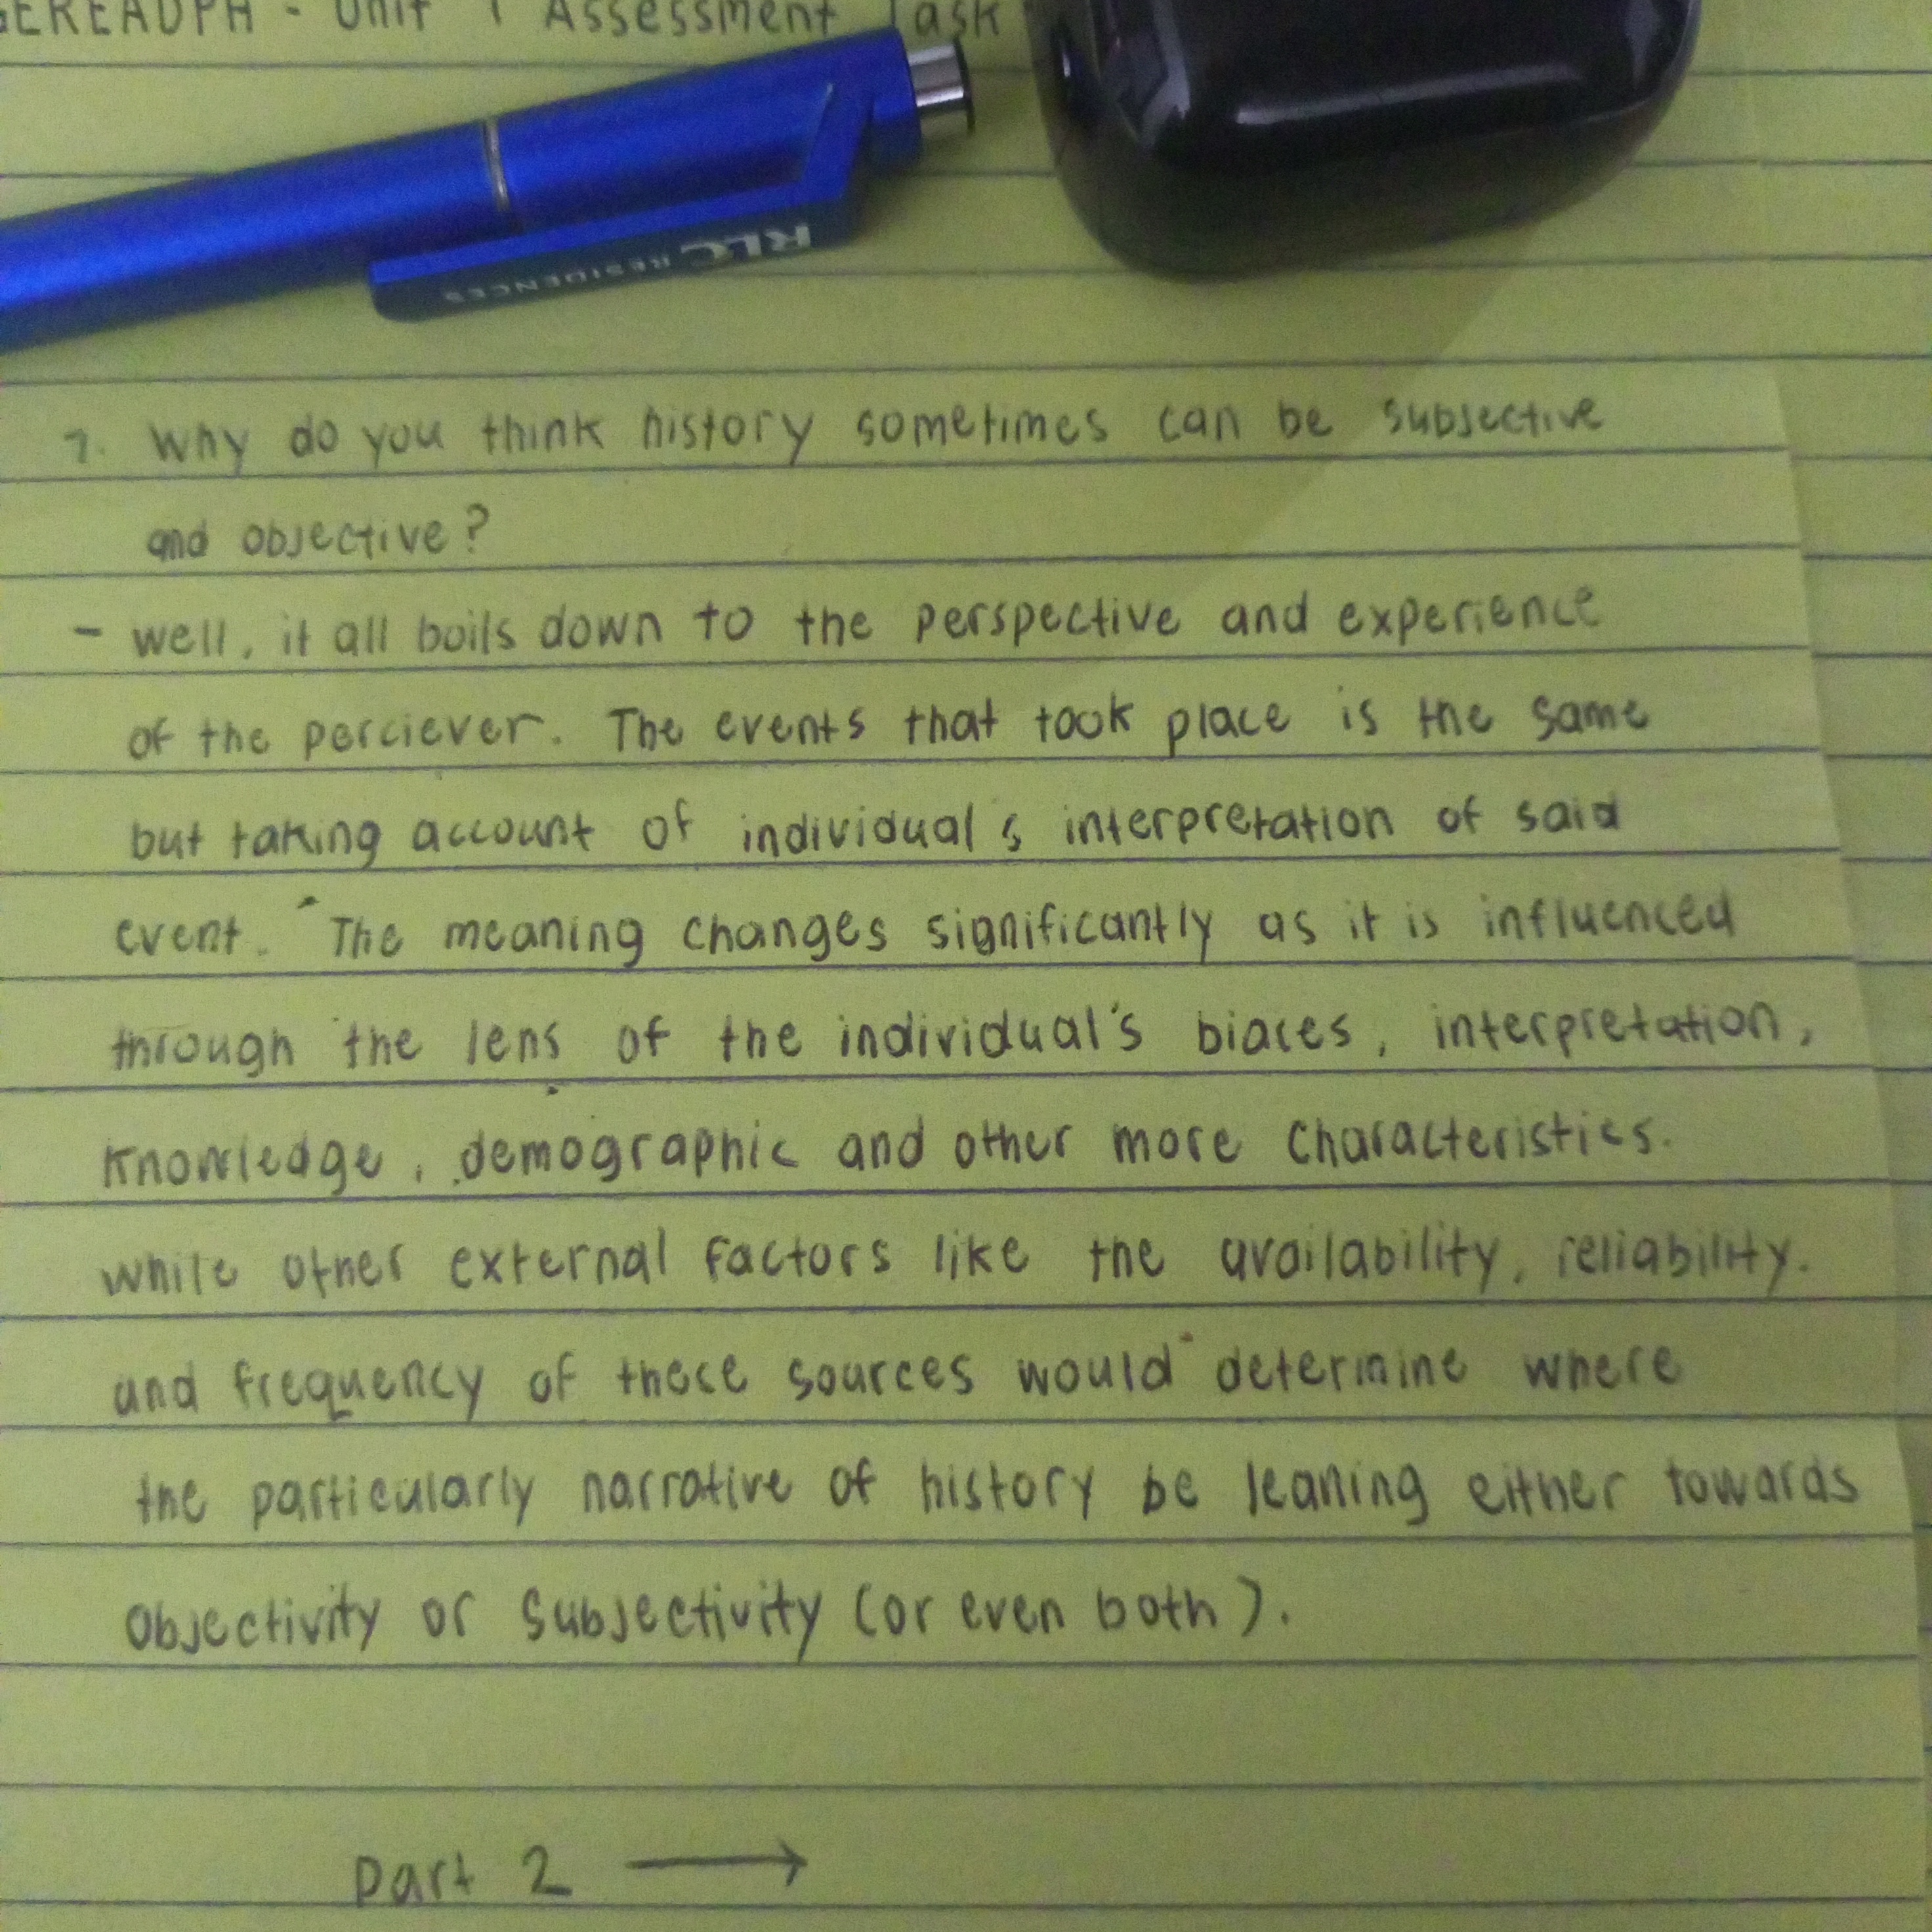 GEREADPH - Unit 1 Assessment Task
RLC RESIDENCES
7. Why do you think history sometimes can be subjective
and objective?
- well, it all boils down to the perspective and experience
of the perciever. The events that took place is the same
but taking account of individual's interpretation of said
event. The meaning changes significantly as it is influenced
through the lens of the individual's biaces, interpretation,
knowledge, demographic and other more characteristics.
while other external factors like the availability, reliability.
and frequency of these sources would determine where
the particularly narrative of history be leaning either towards
objectivity or subjectivity (or even both).
part 2 →